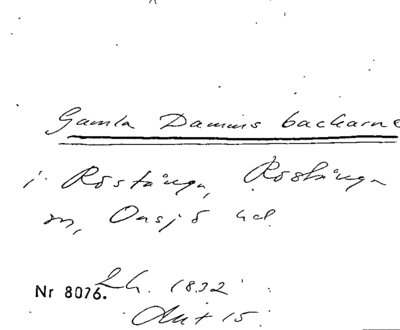 Gamla Damms backarne
i Röstånga, Röstånga
sn, Onsjö hd.
Nr 8076. Lh. 1832
Akt 15.